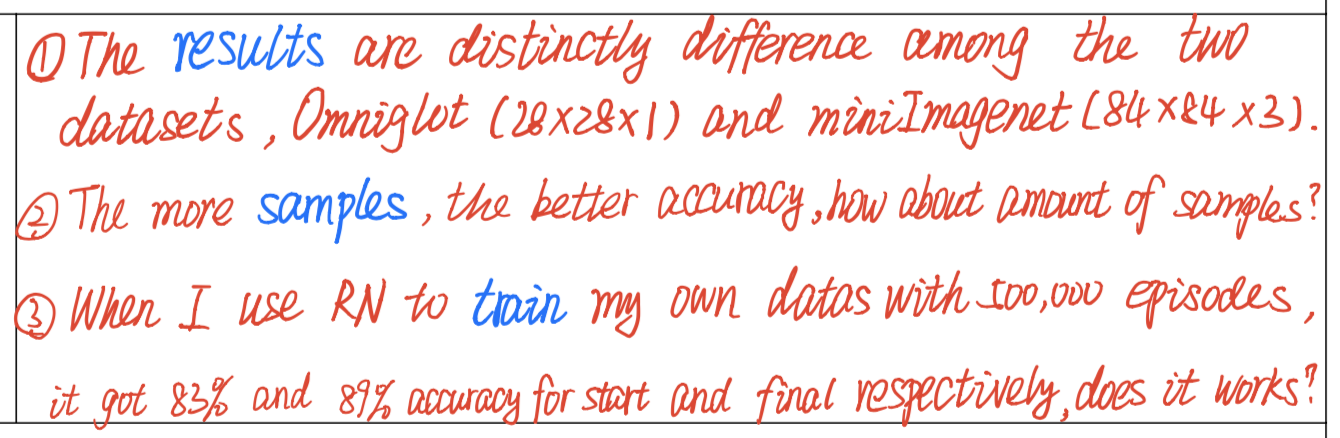 ① The results are distinctly difference among the two
datasets, Omniglot (28×28×1) and miniImagenet (84×84×3).
② The more samples, the better accuracy, how about amount of samples?
③ When I use RN to train my own datas with 500,000 episodes,
it got 83% and 89% accuracy for start and final respectively, does it works?